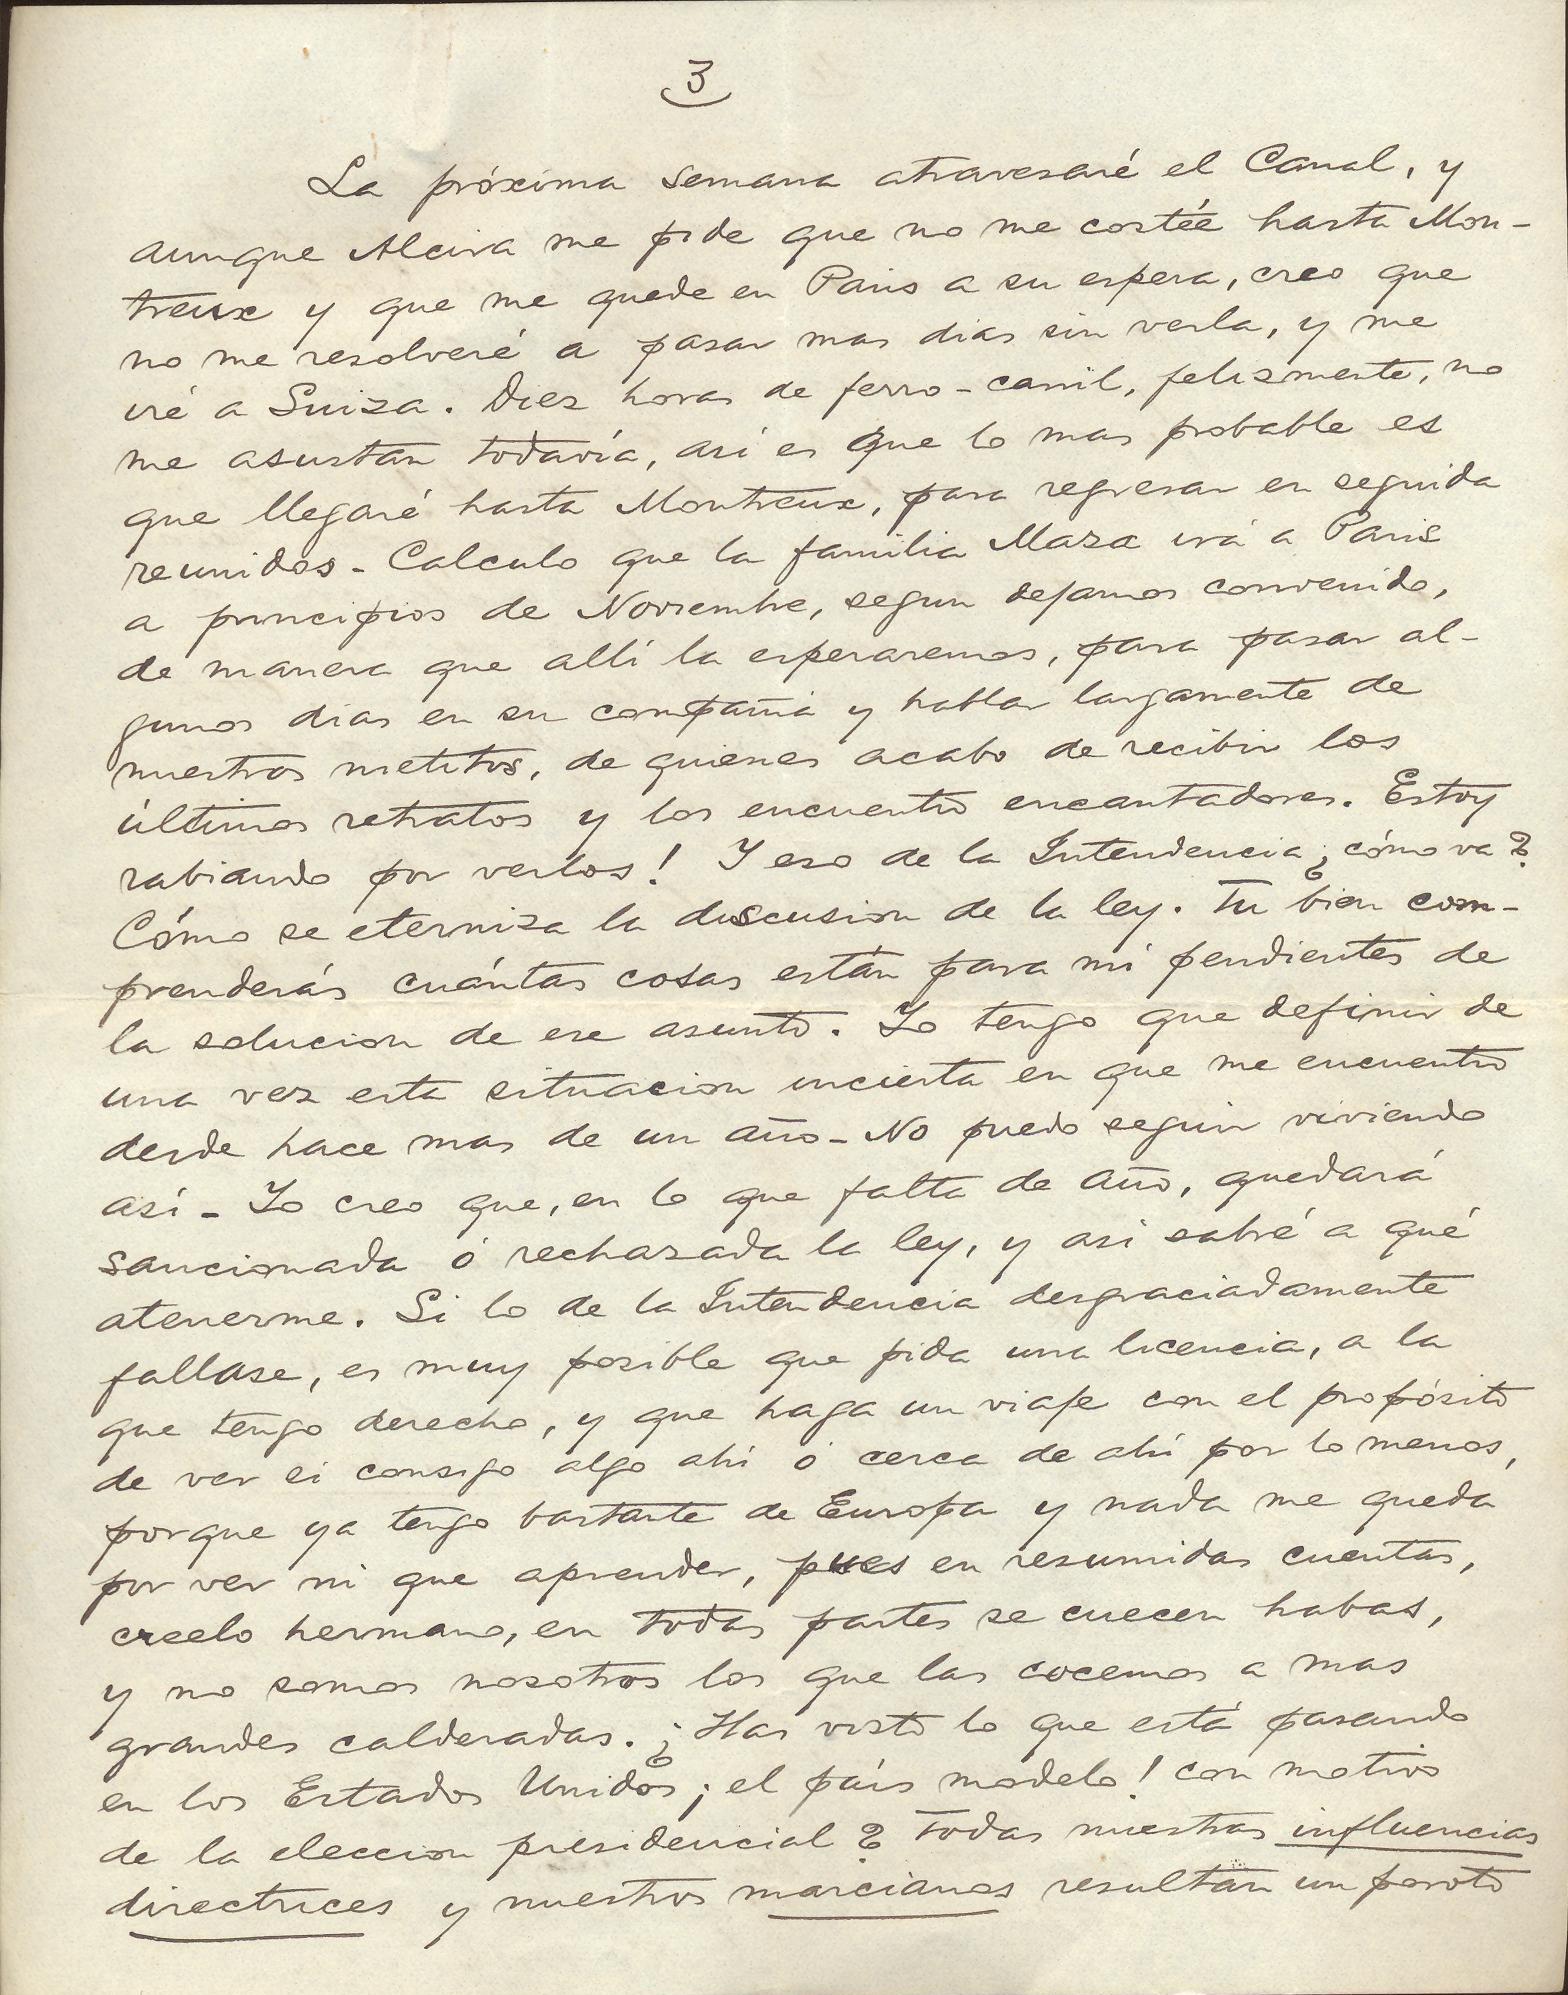 3
La próxima semana atravesaré el Canal, y
aunque Alcira me pide que no me costée hasta Mon-
treux y que me quede en Paris a su espera, creo que
no me resolveré a pasar mas dias sin verla, y me
iré a Suiza. Diez horas de ferro-carril, felizmente, no
me asustan todavía, así es que lo mas probable es
que llegaré hasta Montreux, para regresar en seguida
reunidos - Calculo que la familia Maza irá a Paris
a principios de Noviembre, segun dejamos convenido,
de manera que allí la esperaremos, para pasar al-
gunos dias en su compañia y hablar largamente de
nuestros nietitos, de quienes acabo de recibir los
últimos retratos y los encuentro encantadores. Estoy
rabiando por verlos! Y eso de la Intendencia ¿cómo va?
Cómo se eterniza la discusion de la ley. Tu bien com-
prenderás cuántas cosas están para mí pendientes de
la solucion de ese asunto. Yo tengo que definir de
una vez esta situacion incierta en que me encuentro
desde hace mas de un año - No puedo seguir viviendo
así - Yo creo que, en lo que falta de año, quedará
sancionada ó rechazada la ley, y asi sabré a qué
atenerme. Si lo de la Intendencia desgraciadamente
fallase, es muy posible que pida una licencia, a la
que tengo derecho, y que haga un viaje con el propósito
de ver si consigo algo ahí ó cerca de ahí por lo menos,
porque ya tengo bastante de Europa y nada me queda
por ver ni que aprender, pues en resumidas cuentas,
creelo hermano, en todas partes se cuecen habas,
y no somos nosotros los que las cocemos a mas
grandes calderadas. ¿Has visto lo que está pasando
en los Estados Unidos ¡el país modelo! con motivo
de la eleccion presidencial? Todas nuestras influencias
directrices y nuestros marcianos resultan un poroto